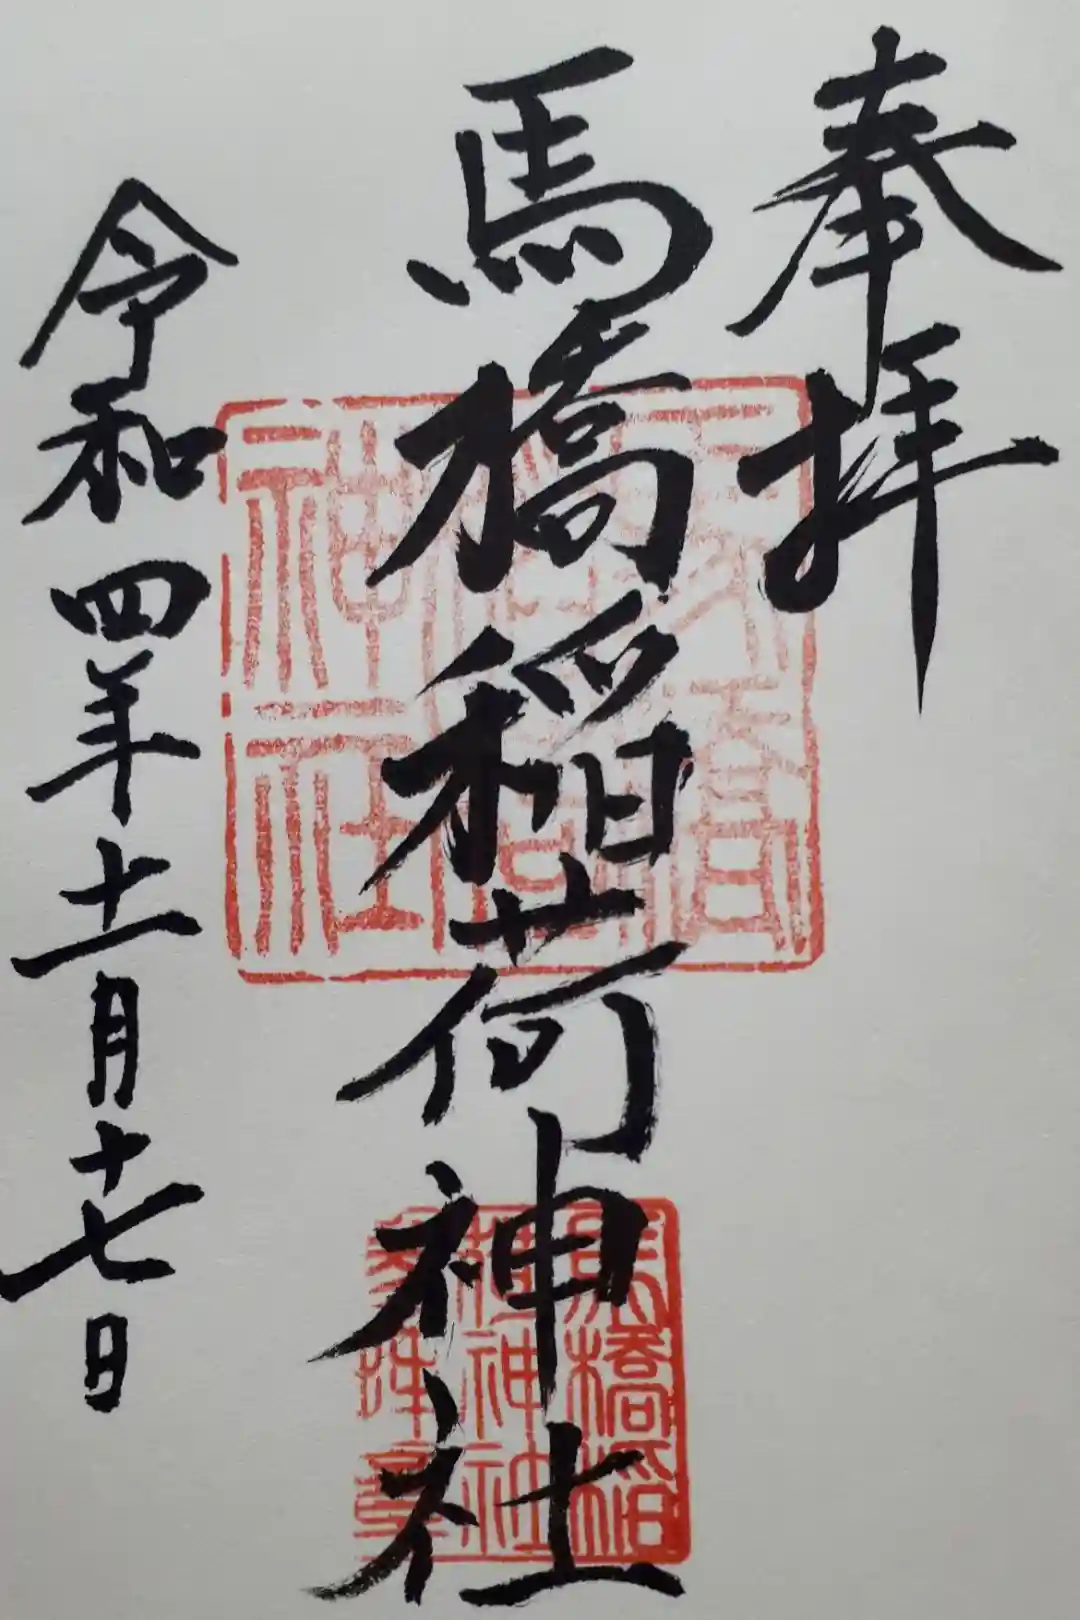 奉拝
馬橋稲荷神社
令和四年十一月十七日